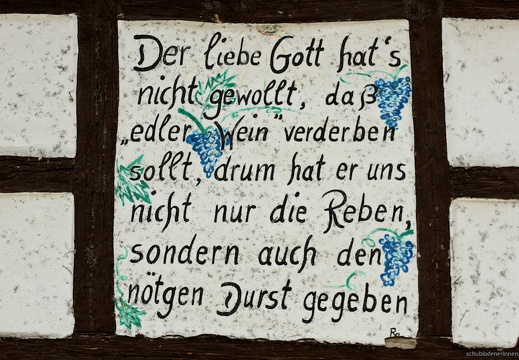 Der liebe Gott hat's
nicht gewollt, daß
„edler Wein" verderben
sollt, drum hat er uns
nicht nur die Reben,
sondern auch den
nötgen Durst gegeben